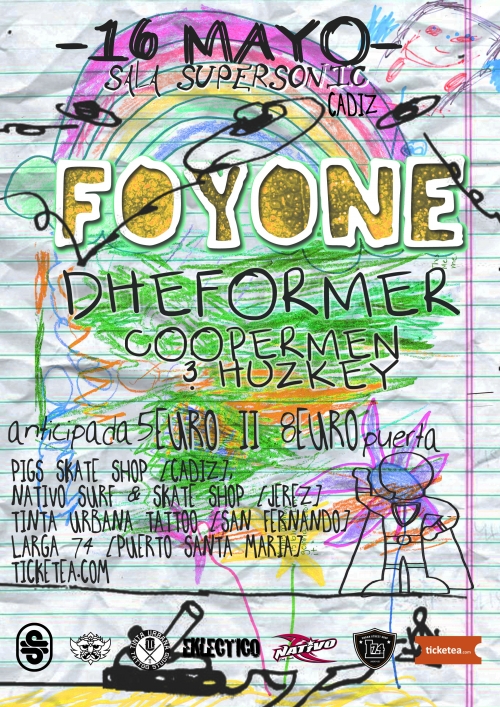 -16 MAYO-
SALA SUPERSONIC
CADIZ
FOYONE
DHEFORMER
COOPERMEN
& HUZKEY
anticipada 5EURO II 8EURO puerta
PIGS SKATE SHOP [CADIZ],
NATIVO SURF & SKATE SHOP [JEREZ]
TINTA URBANA TATTOO [SAN FERNANDO]
LARGA 74 [PUERTO SANTA MARIA]
TICKETEA.COM
TINTA URBANA
TATTOO STUDIO
EKLECTICO
NATIVO
L74
ticketea.com